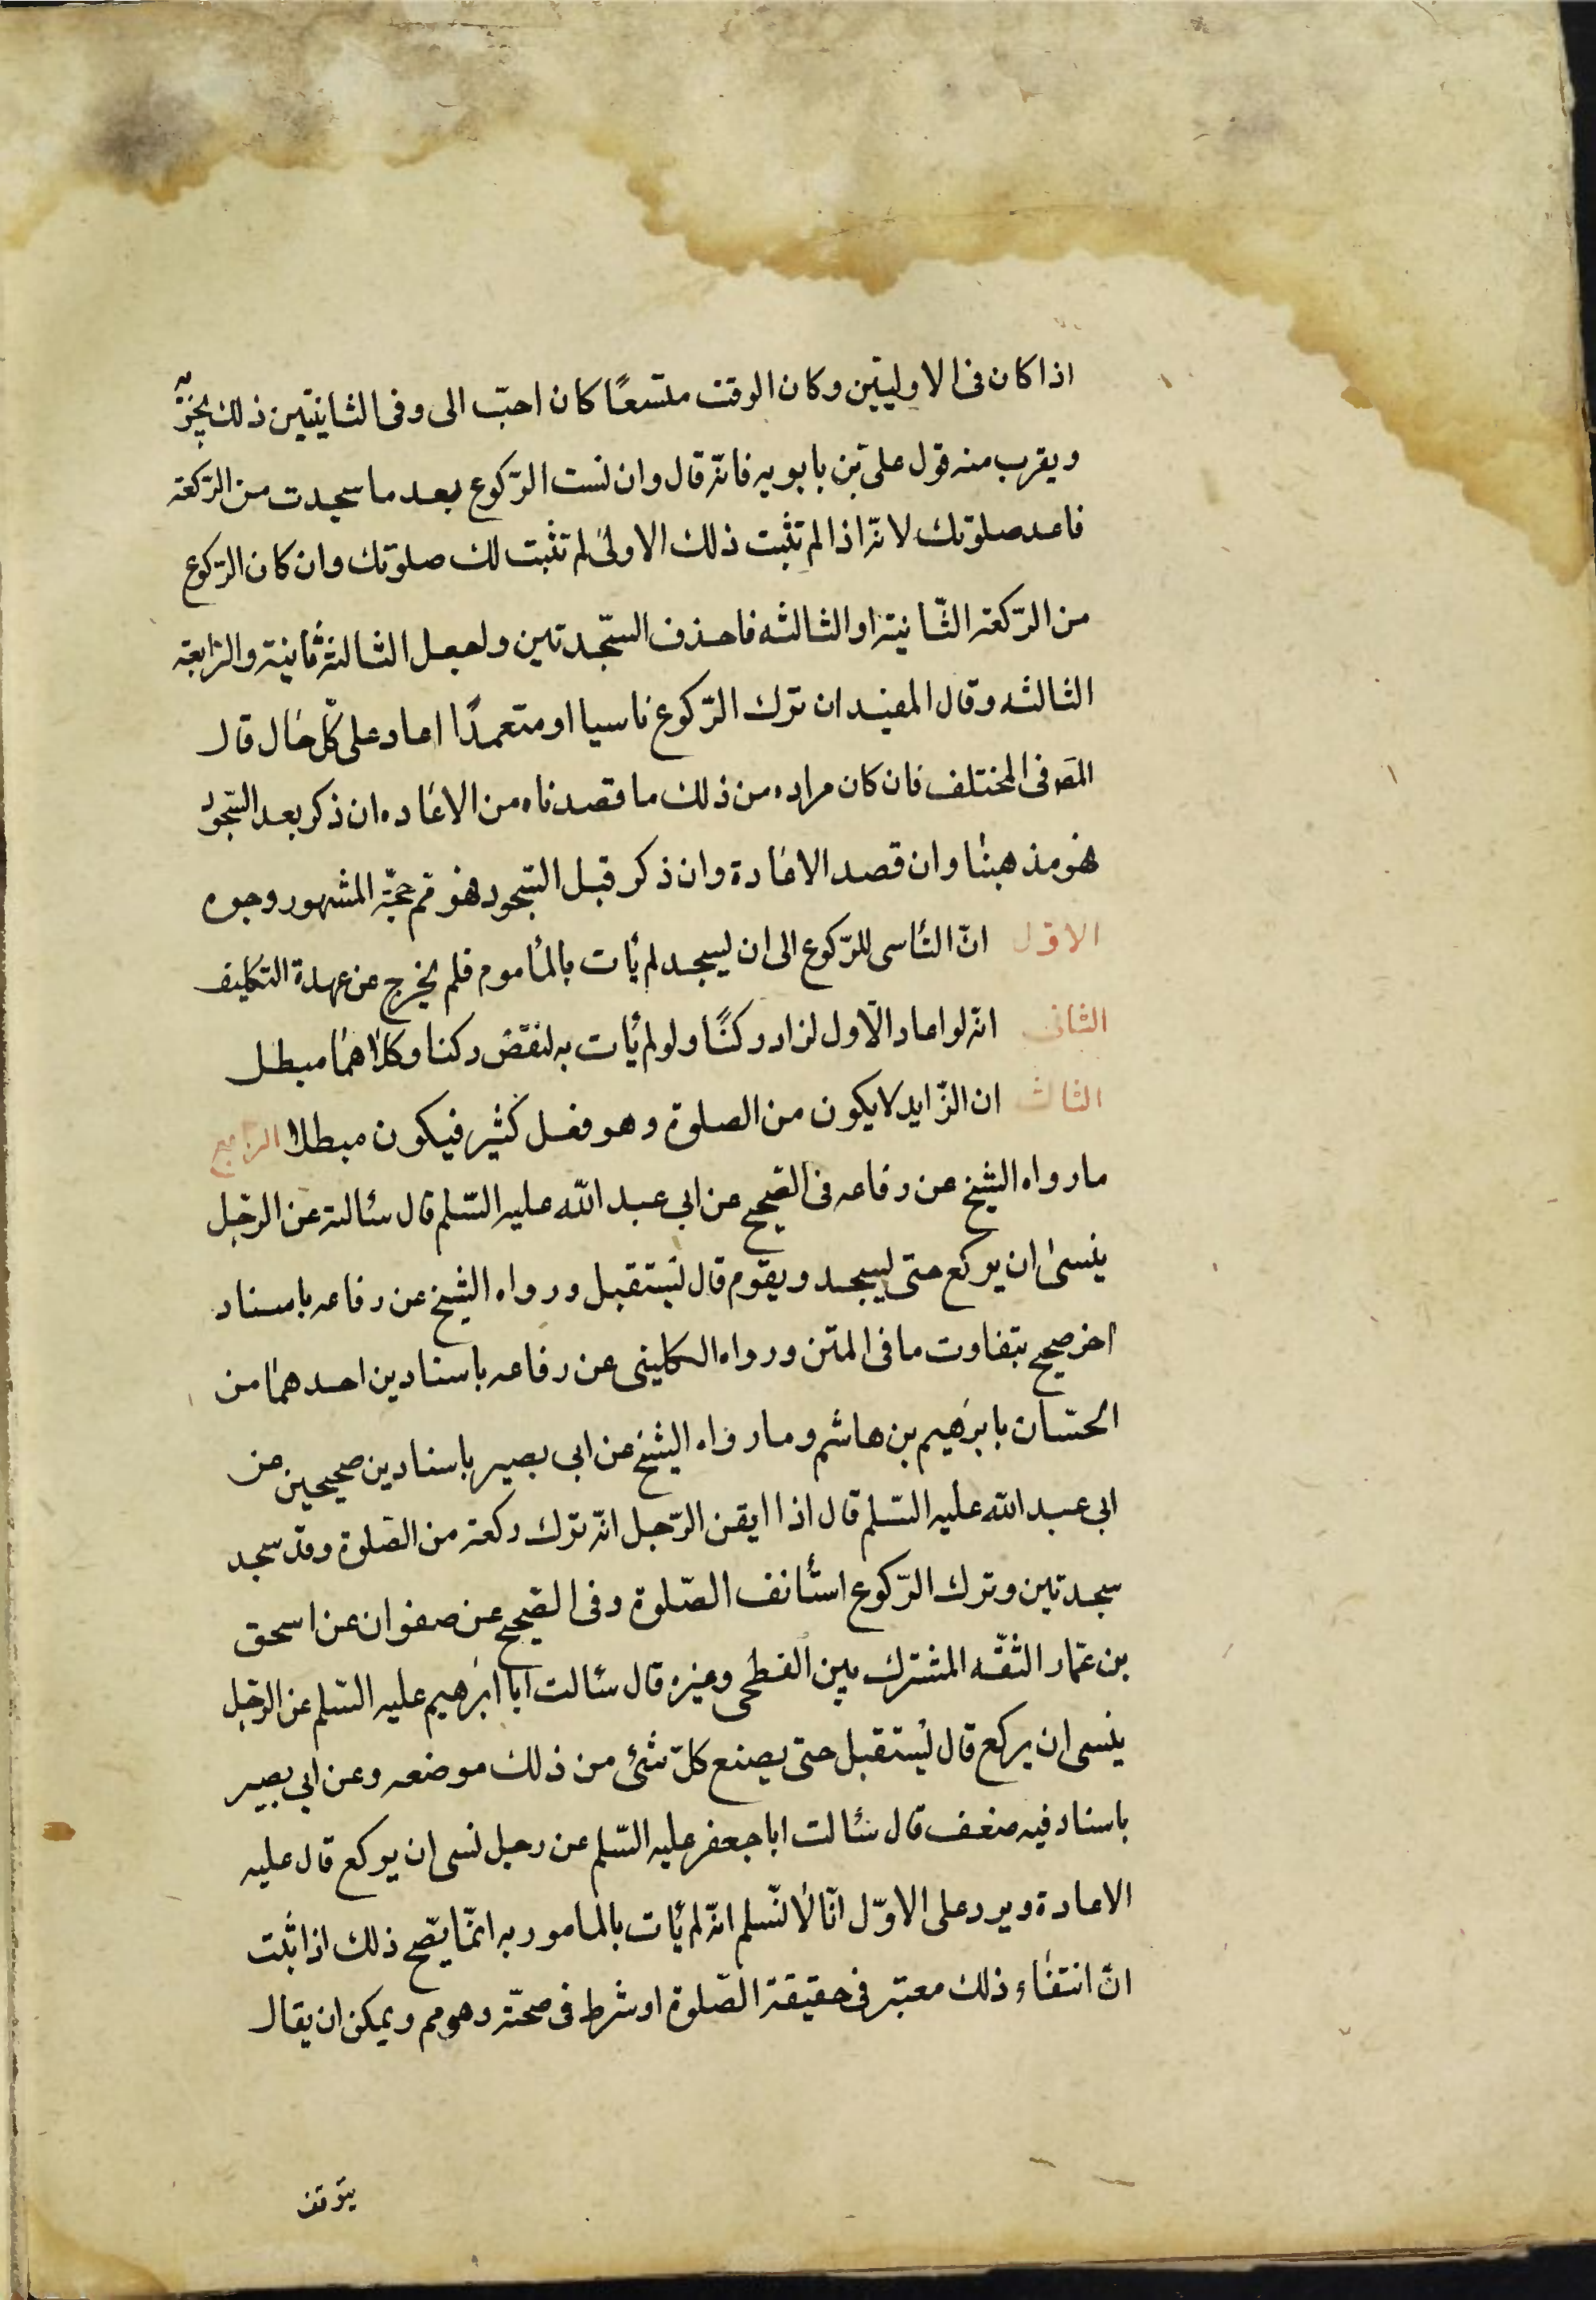 اذا كان فى الاوليتين وكان الوقت متسعًا كان احبّ الى وفى الثانيتين ذلك يجزيه
ويقرب منه قول علىّ بن بابويه فانه قال وان نست الرّكوع بعد ما سجدت من الرّكعة
فاعد صلوتك لانّه اذا لم تثبت ذلك الاولىٰ لم تثبت لك صلوتك وان كان الرّكوع
من الرّكعة الثّانية او الثالثه فاحذف السّجدتين واجعل الثالثة ثانية والرّابعة
الثالثه وقال المفيد ان ترك الرّكوع ناسيا او متعمدًا اعاد على كلّ حال قال
المص فى المختلف فان كان مراده من ذلك ما قصدناه من الاعاده ان ذكر بعد السّجود
فهو مذهبنا وان قصد الاعادة وان ذكر قبل السّجود فهو مم حجّة المشهور وجوه
الاول انّ النّاسى للرّكوع الى ان يسجد لم يأت بالمأموم فلم يخرج عن عهدة التكليف
الثانى انّه لو اعاد الاول لزاد ركنًا ولو لم يأت به لنقض ركنا وكلاهما مبطل
الثالث ان الزّايد لا يكون من الصلوة وهو فعل كثير فيكون مبطلا الرّابع
ما رواه الشيخ عن رفاعه فى الصّحيح عن ابي عبد اللّه عليه السّلم قال سئالته عن الرّجل
ينسىٰ ان يركع حتى يسجد ويقوم قال يستقبل ورواه الشيخ عن رفاعه باسناد
اخر صحيح بتفاوت ما فى المتن ورواه الكلينى عن رفاعه باسنادين احدهما من
الحسّان بابرٰهيم بن هاشم وما رواه الشيخ عن ابي بصير باسنادين صحيحين عن
ابى عبد الله عليه السّلم قال اذا ايقن الرّجل انّه ترك ركعة من الصّلوة وقد سجد
سجدتين وترك الرّكوع استأنف الصّلوة وفى الصّحيح عن صفوان عن اسحق
بن عمّار الثقّه المشترك بين الفطحى وغيره قال سئالت ابا ابرٰهيم عليه السّلم عن الرّجل
ينسى ان يركع قال يستقبل حتى يصنع كلّ شئ من ذلك موضعه وعن ابي بصير
باسناد فيه ضعف قال سئالت ابا جعفر عليه السّلم عن رجل نسى ان يركع قال عليه
الاعادة ويرد على الاوّل انّا لا نسّلم انّه لم يأت بالمامور به انّما يصّح ذلك اذا ثبت
انّ انتفاء ذلك معتبر فى حقيقة الصّلوة او شرط فى صحّته وهو مم ويمكن ان يقال
يتوقف